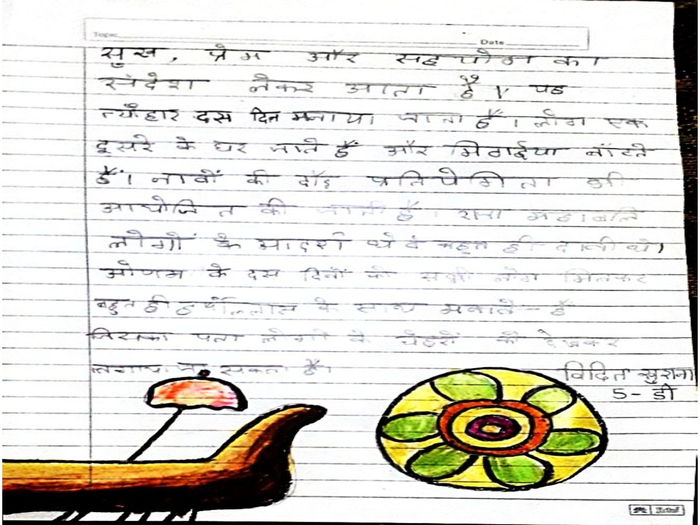 Date
सुख, प्रेम और सहयोग का
संदेश लेकर आता है। यह
त्यौहार दस दिन मनाया जाता है। लोग एक
दूसरे के घर जाते हैं और मिठाईया बाँटते
हैं। नावों की दौड़ प्रतियोगिता भी
आयोजित की जाती है। राजा महाबलि
लोगों के आदर्श थे वे बहुत ही दानी थे।
ओणम के दस दिनों को सभी लोग मिलकर
बहुत ही हर्षोल्लास के साथ मनाते - हैं
जिसका पता लोगों के चेहरों को देखकर
लगाया जा सकता है।
विदित सुराना
5 - डी